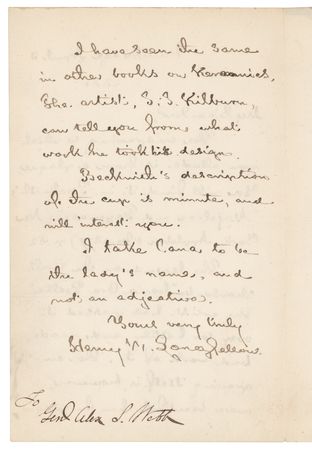 I have seen the same
in other books on Keramics.
The artist, S. S. Kilburn,
can tell you from what
work he took his design.
Beckwith's description
of the cup is minute, and
will interest you.
I take Cana to be
the lady's name, and
not an adjective.
Yours very truly
Henry W. Longfellow.
To
Genl. Alex S. Webb